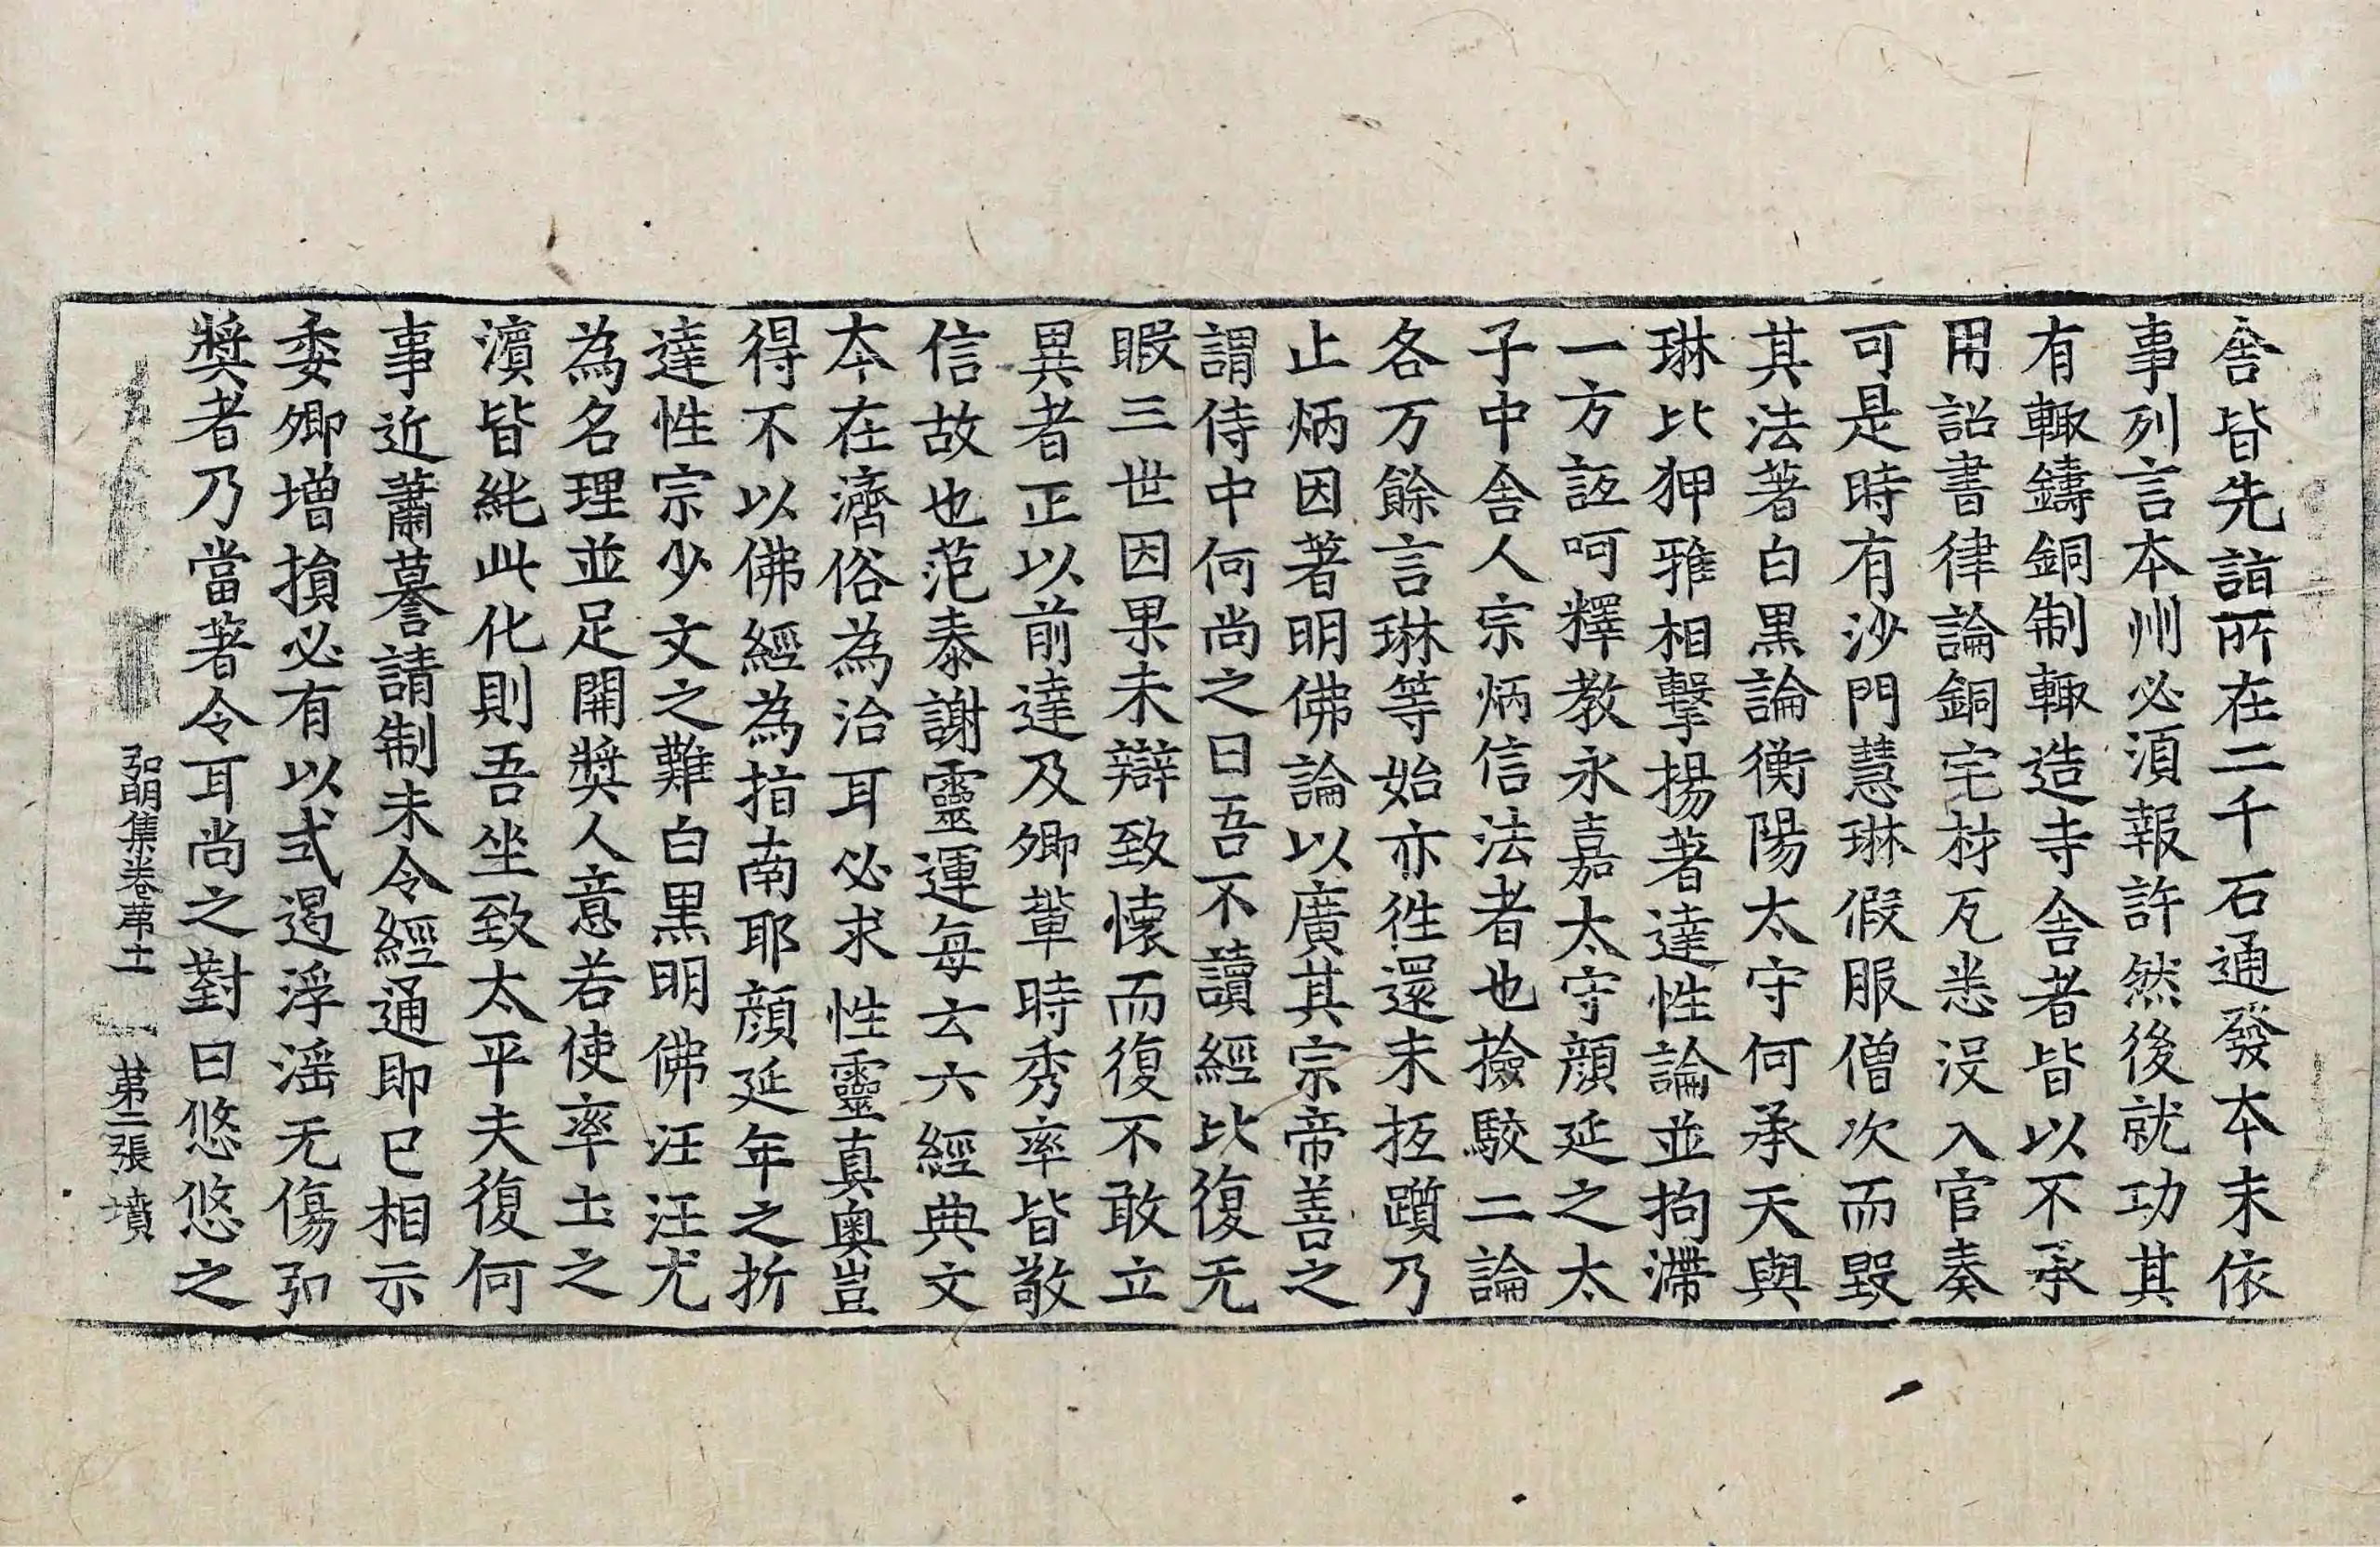 舍皆先詣所在二千石通發本末依
事列言本州必湏報許然後就功其
有輙鑄銅制輙造寺舍者皆以不承
用詔書律論銅宅材瓦悉没入官奏
可是時有沙門慧琳假服僧次而毀
其法著白黒論衡陽太守何承天與
琳比狎雅相擊揚著達性論並拘滯
一方詆呵釋教永嘉太守顔延之太
子中舍人宗炳信法者也撿駮二論
各万餘言琳等始亦徃還未抵躓乃
止炳因著明佛論以廣其宗帝善之
謂侍中何尚之曰吾不讀經比復无
暇三世因果未辯致懷而復不敢立
異者正以前達及卿輩時秀率皆敬
信故也范泰謝靈運每云六經典文
本在濟俗為治耳必求性靈真奧豈
得不以佛經為指南耶顔延年之折
達性宗少文之難白黒明佛汪汪尤
為名理並足開奬人意若使率土之
濵皆純此化則吾坐致太平夫復何
事近蕭摹請制未令經通即已相示
委卿増損必有以式遏浮滛无傷弘
奬者乃當著令耳尚之對曰悠悠之
弘明集卷苐十一 第二張 墳